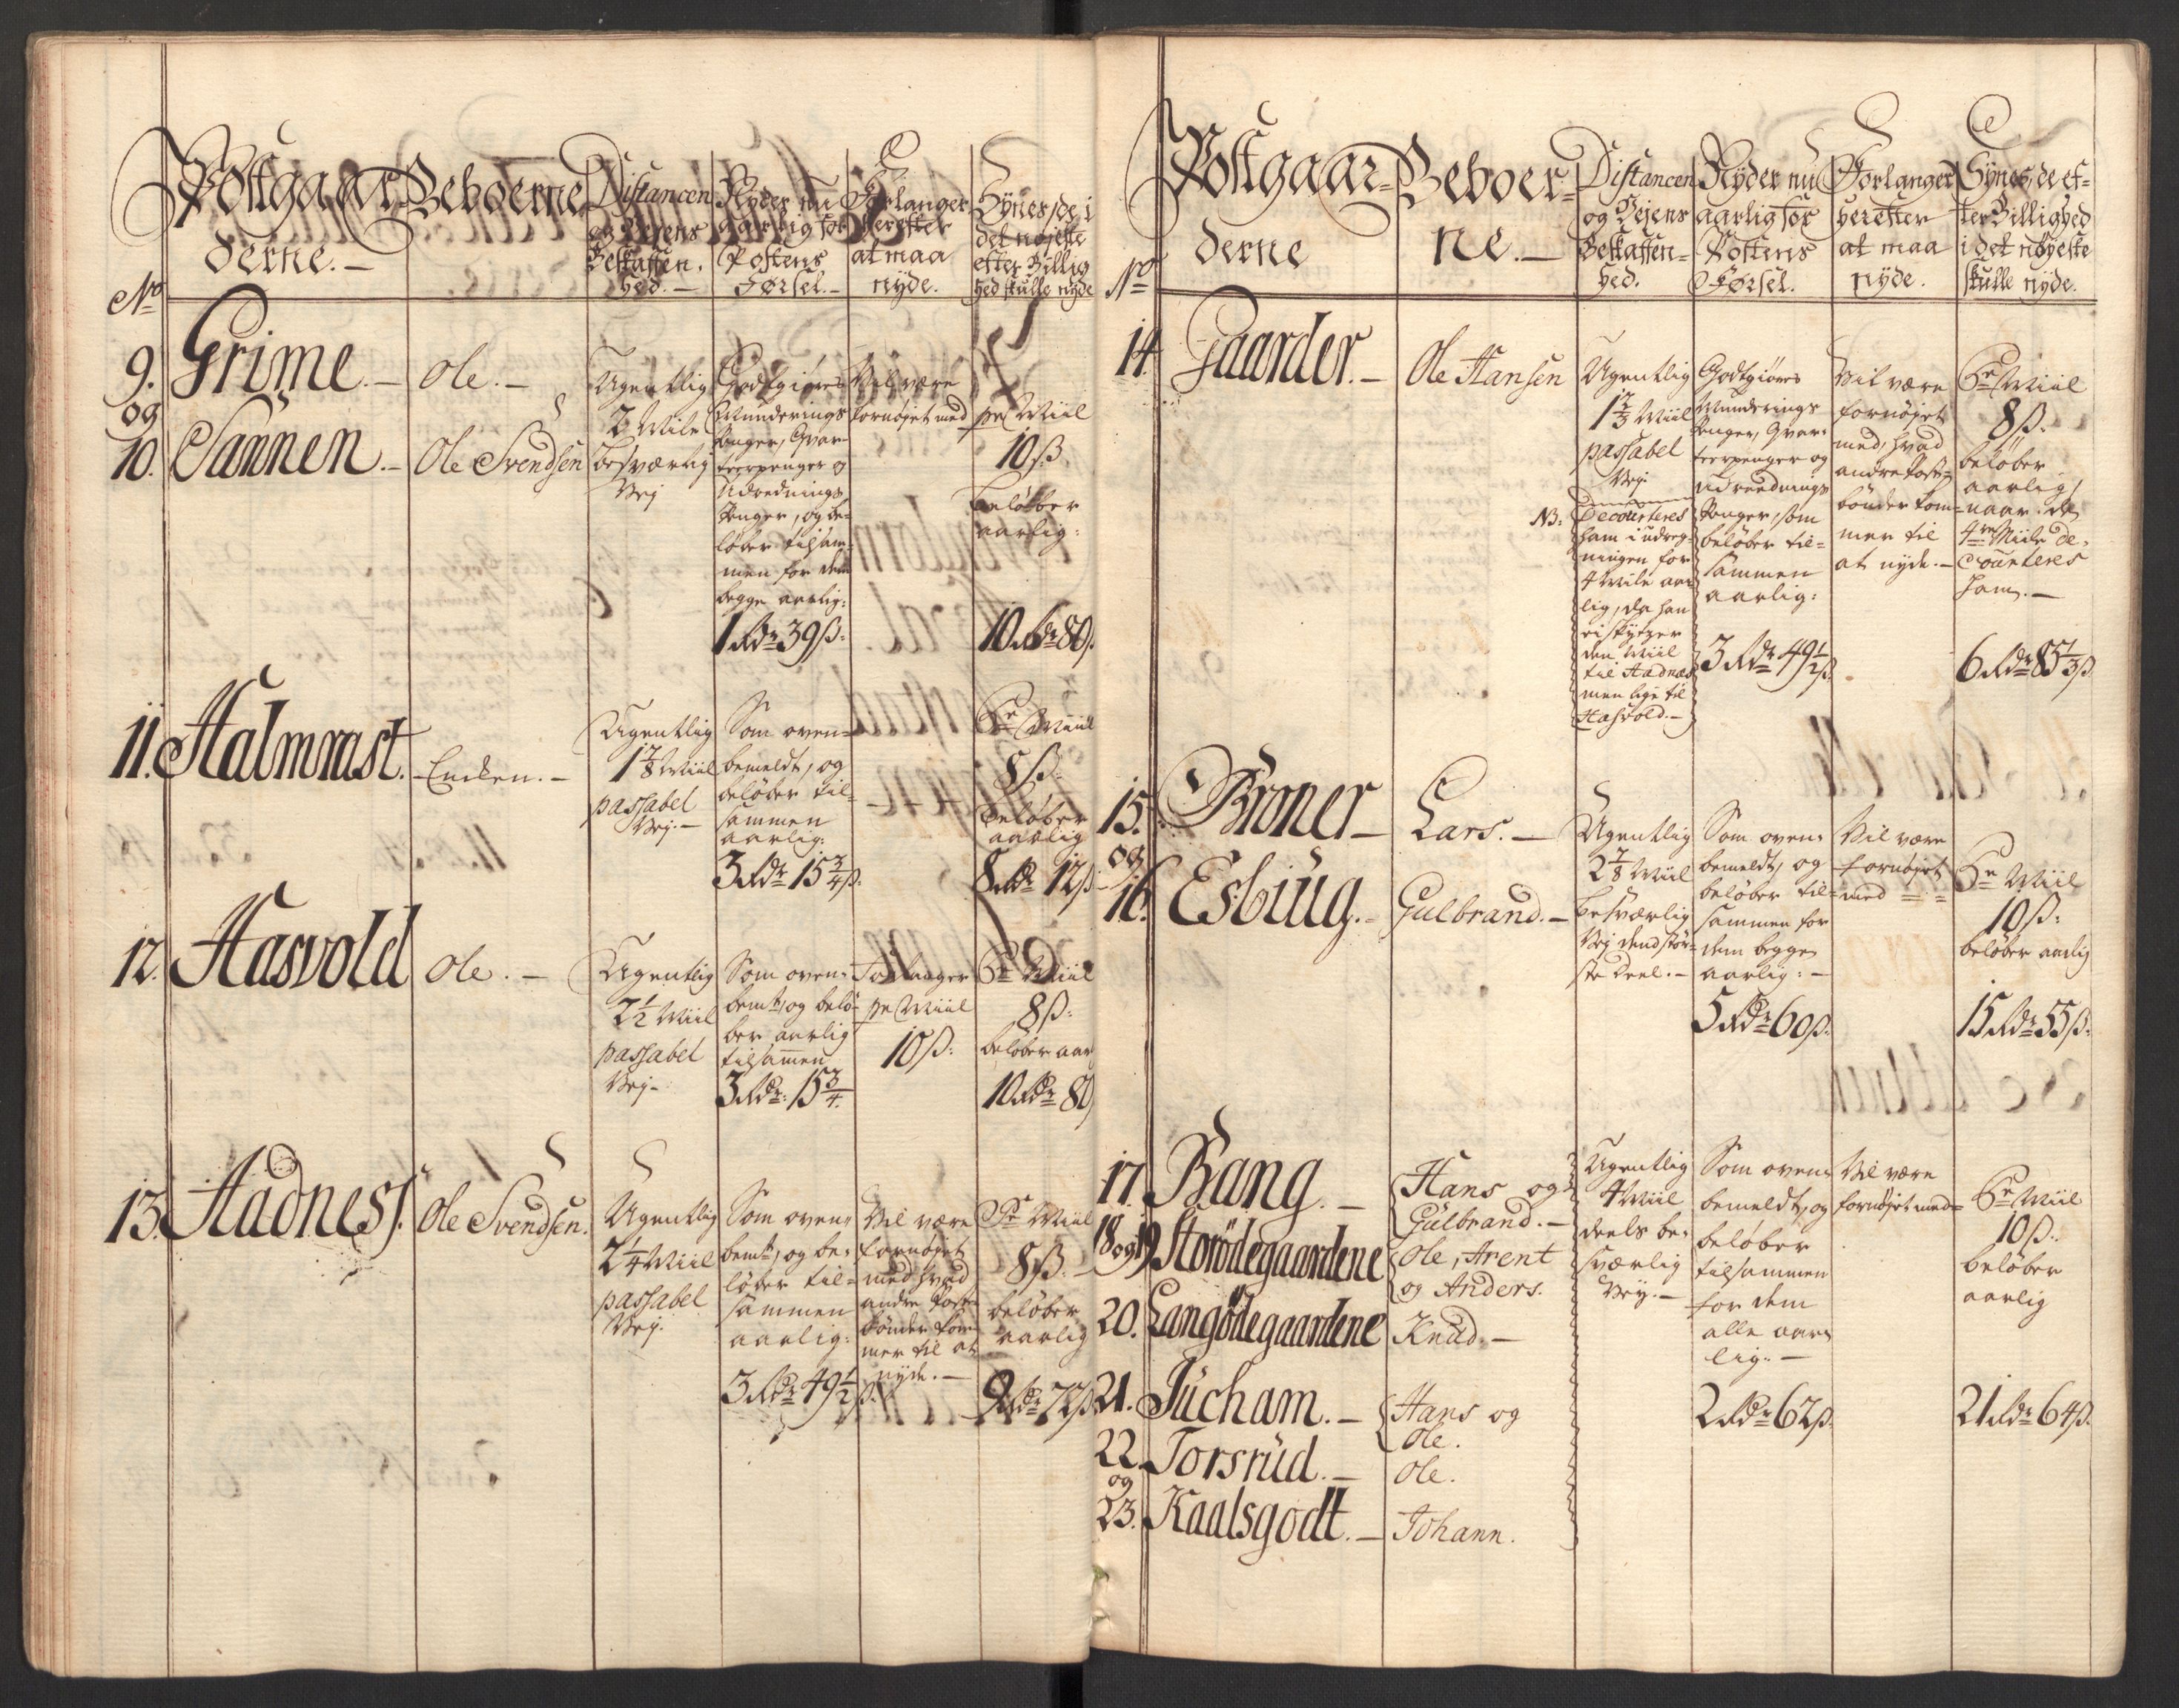 Postgaar-
derne.
Beboerne
Distancen
og Vejens
Beskaffen-
hed.
Nyder nu
aarlig for
Postens
Førsel.
Forlanger
herefter
at maa
nyde.
Synes, de i
det nøjeste
efter Billig
hed skulle nyde
No
9.
Grime.
Ole.
og
10.
Sannen.
Ole Svendsen
Ugentlig
2 Mile
besværlig
Vej
Godtgiøres
Munderings
Penger, Qvar-
teerpenger og
Udrednings
Penger, og be-
løber tilsam-
men for dem
begge aarlig:
1 Rdr 39 ß.
Vil være
fornøjet med
pr Miil
10 ß.
beløber
aarlig:
10 Rdr 80 ß.
11.
Halmrast.
Encken.
Ugentlig
1 7/8 Miil
passabel
Vej.
Som oven-
bemeldt, og
beløber til-
sammen
aarlig:
3 Rdr 15 3/4 ß.
Pr Miil
8 ß.
beløber
aarlig
8 Rdr 12 ß.
12.
Hasvold
Ole.
Ugentlig
2 1/2 Miil
passabel
Vej
Som oven-
bemt, og belø-
ber aarlig
tilsamen
3 Rdr. 15 3/4.
Forlanger
pr Miil
10 ß.
Pr Miil
8 ß.
beløber aar
10 Rdr 80
13.
Hadness.
Ole Svendsen.
Ugentlig
2 1/4 Miil
passabel
Vej.
Som oven-
bemt, og be-
løber til-
sammen
aarlig:
3 Rdr 49 1/2 ß.
Vil være
fornøjet
med hvad
andre Post-
bønder kom-
mer til at
nyde.
Pr Miil
8 ß.
beløber
aarlig
9 Rdr 72 ß.
Postgaar-
derne
Beboer-
ne.
Distancen
og Vejens
Beskaffen-
hed.
Nyder nu
aarlig for
Postens
Førsel.
Forlanger
herefter
at maa
nyde.
Synes, de ef-
ter Billighed
i det nøyeste
skulle nyde.
No
14.
Gaarder.
Ole Hansen
Ugentlig
1 2/3 Miil
passabel
Vej.
NB:
Decourteres
ham i udreg-
ningen for
4 Mile aar-
lig, da han
ei skydzer
den Miil
til Hadnes
men lige til
Hasvold.
Godtgiøres
Munderings
Penger, Qvar-
teerpenger og
udreednings
Penger, som
beløber til-
sammen
aarlig:
3 Rdr 49 1/2 ß.
Vil være
fornøjet
med, hvad
andre Post-
bønder kom-
mer til
at nyde.
Pr Miil
8 ß.
beløber
aarlig,
naar de
4re Miile de-
courteres
ham.
6 Rdr 83 1/3 ß.
15.
Broner
Lars.
og
16.
Esbiug.
Gulbrand.
Ugentlig
2 7/8 Miil
besværlig
Vej dend stør-
ste Deel.
Som oven-
bemeldt, og
beløber til-
sammen for
dem begge
aarlig:
5 Rdr 60 ß.
Vil være
fornøjet
med
Pr Miil
10 ß:
beløber aarlig
15 Rdr 55 ß.
17.
Bang.
Hans og
Gulbrand.
18 og 19
Storödegaardene
Ole, Arent
og Anders.
20.
Langödegaardene
Knud.
21.
Jucham.
Hans og
Ole.
22.
Torsrud.
Ole.
og
23.
Kaalsgodt.
Johann.
Ugentlig
4 Miil
deels be-
sværlig
Vej.
Som oven-
bemeldt, og
beløber
tilsammen
for dem
alle aar-
lig:
2 Rdr 62 ß.
Vil være
fornøjet med
Pr Miil
10 ß.
beløber
aarlig
21 Rdr 64 ß.